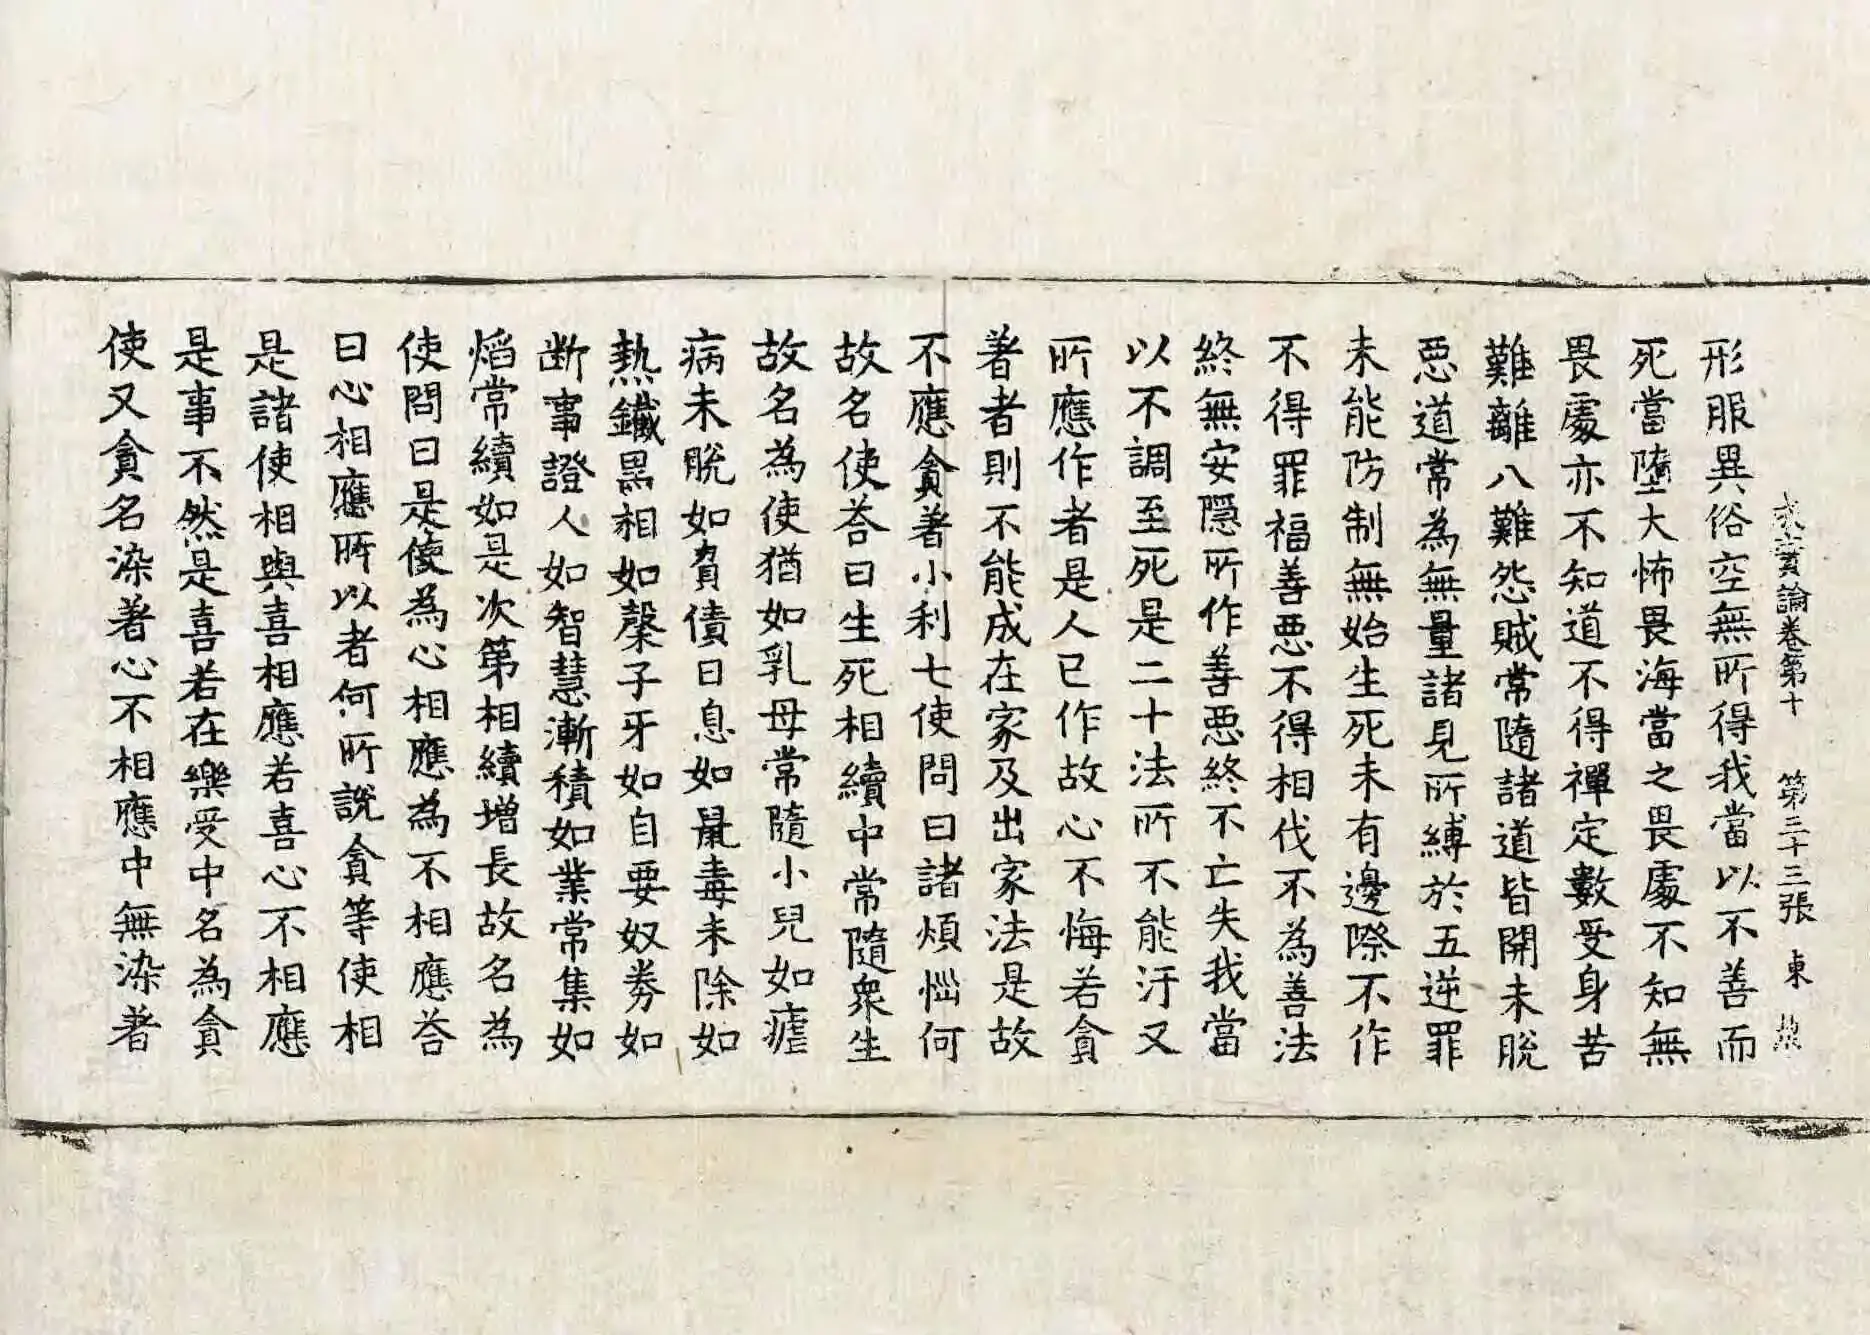 成實論卷第十 第三十三張 東
形服異俗空無所得我當以不善而
死當墮大怖畏海當之畏處不知無
畏處亦不知道不得禪定數受身苦
難離八難怨賊常隨諸道皆開未脫
惡道常為無量諸見所縛於五逆罪
未能防制無始生死未有邊際不作
不得罪福善惡不得相伐不為善法
終無安隱所作善惡終不亡失我當
以不調至死是二十法所不能汙又
所應作者是人已作故心不悔若貪
著者則不能成在家及出家法是故
不應貪著小利七使問曰諸煩惱何
故名使答曰生死相續中常隨衆生
故名為使猶如乳母常隨小兒如瘧
病未脫如負債日息如鼠毒未除如
熱鐵黑相如穈子牙如自要奴券如
断事證人如智慧漸積如業常集如
焰常續如是次第相續增長故名為
使問曰是使為心相應為不相應荅
曰心相應所以者何所說貪等使相
是諸使相與喜相應若喜心不相應
是事不然是喜若在樂受中名為貪
使又貪名染著心不相應中無染著